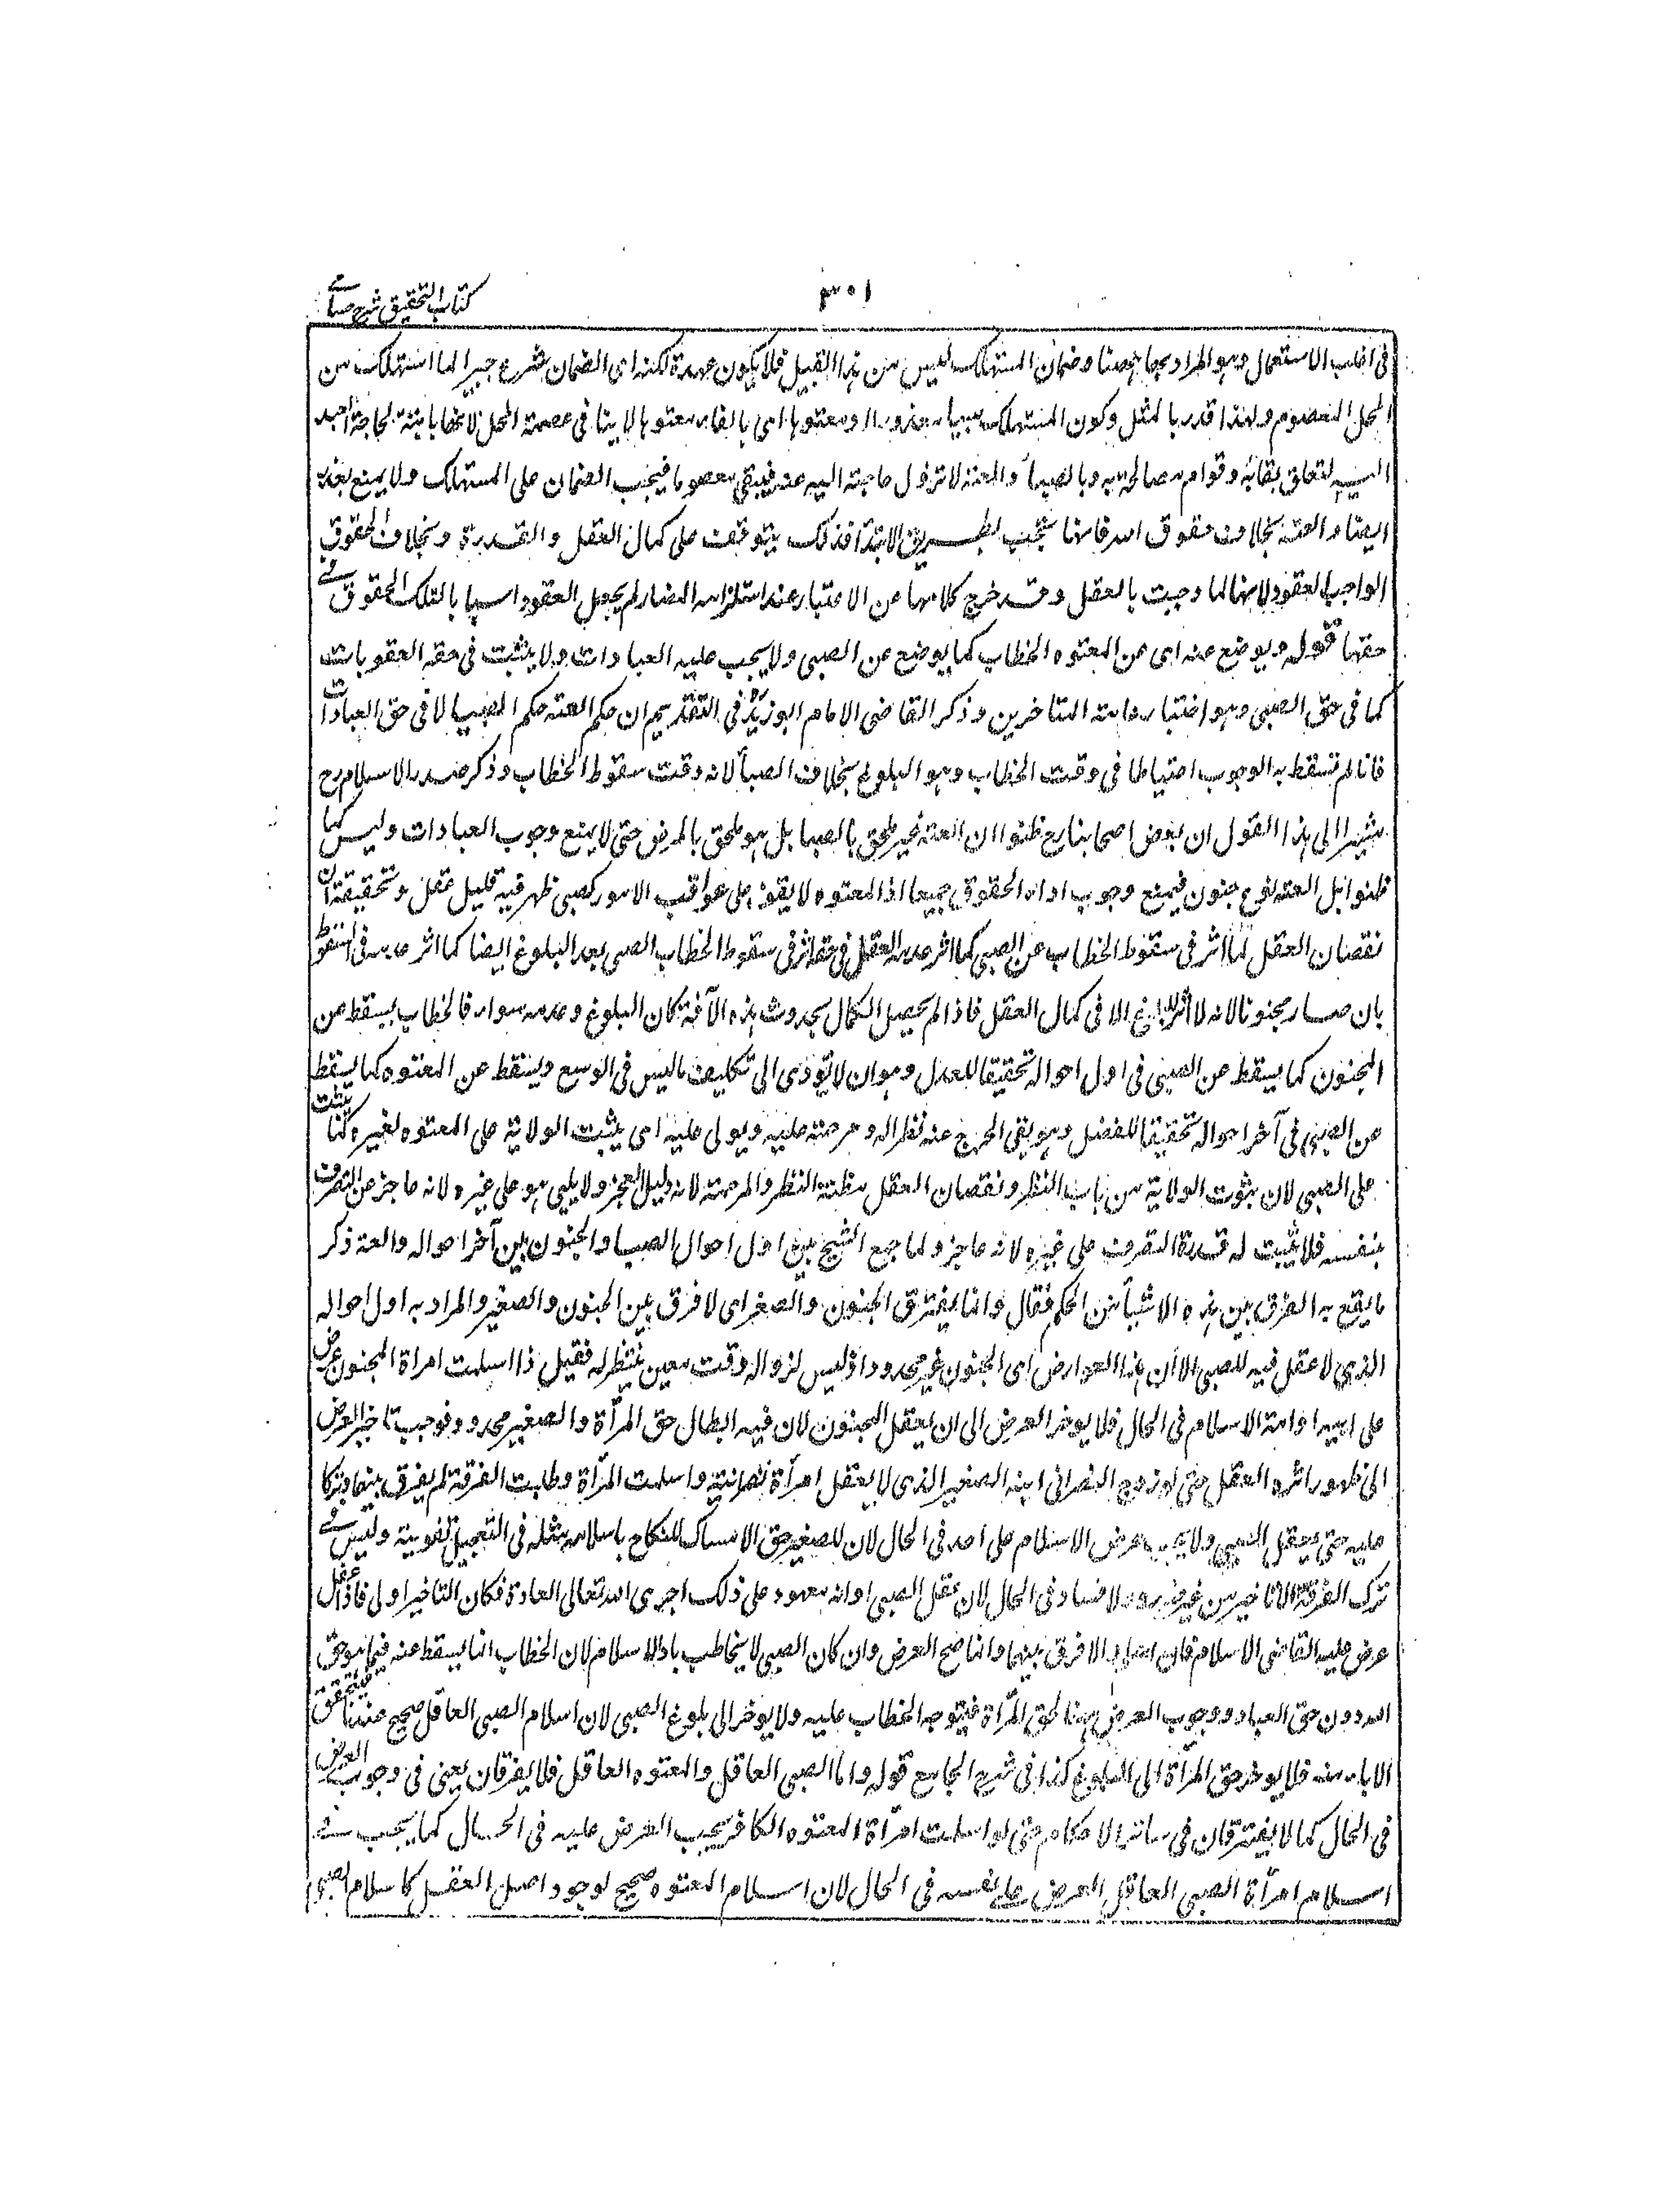 كتاب التحقيق شرح حسامے
٣٠١
فى اغلب الاستعمال وهو المراد بها ههنا وضمان المستهلك ليس من هذا القبيل فلا يكون عهدة لكنه اى الضمان شرع جبرا لما استهلك من
المحل المعصوم ولهذا قدر بالمثل وكون المستهلك صبيا معذورا او معتوها اى بالغا معتوها لا ينافى عصمة المحل لانها ثابتة لحاجة العبد
اليه لتعلق بقائه وقوام مصالحه به وبالصبا والعته لا تزول حاجته اليه عنه فيبقى معصوما فيجب الضمان على المستهلك ولا يمنع بعذر
الصبا والعته بخلاف حقوق الله فانها تجب بطريق الابتداء فذلك يتوقف على كمال العقل والقدرة وبخلاف الحقوق
الواجبة بالعقود لانها لما وجبت بالعقد وقد خرج كلامهما عن الاعتبار عند استلزامه المضار لم يجعل العقود اسبابا لتلك الحقوق فے
حقهما قوله ويوضع عنه اى عن المعتوه الخطاب كما يوضع عن الصبى ولا يجب عليه العبادات ولا يثبت فى حقه العقوبات
كما فى حق الصبى وهو اختيار عامة المتاخرين وذكر القاضى الامام ابو زيدؒ فى التقويم ان حكم العته حكم الصبا لا فى حق العبادات
فانا لم نسقط به الوجوب احتياطا فى وقت الخطاب وهو البلوغ بخلاف الصبا لانه وقت سقوط الخطاب وذكر صدر الاسلام رح
مشيرا الى هذا القول ان بعض اصحابنا رح ظنوا ان العته غير ملحق بالصبا بل هو ملحق بالمرض حتى لا يمنع وجوب العبادات وليس كما
ظنوا بل العته نوع جنون فيمنع وجوب اداء الحقوق جميعا اذ المعتوه لا يقف على عواقب الامور كصبى ظهر فيه قليل عقل وتحقيقه ان
نقصان العقل لما اثر فى سقوط الخطاب عن الصبى كما اثر عدم العقل فى حقه اثر فى سقوط الخطاب بعد البلوغ ايضا كما اثر عدمه فى السقوط
بان صار مجنونا لانه لا اثر للبلوغ الا فى كمال العقل فاذا لم يحصل الكمال بحدوث هذه الآفة كان البلوغ وعدمه سواء فالخطاب يسقط عن
المجنون كما يسقط عن الصبى فى اول احواله تحقيقا للعدل وهو ان لا يؤدى الى تكليف ما ليس فى الوسع ويسقط عن المعتوه كما يسقط
عن الصبى فى آخر احواله تحقيقا للفضل وهو نفى الحرج عنه نظرا له ومرحمة عليه ويولى عليه اى يثبت الولاية على المعتوه لغيره كما يثبت
على الصبى لان ثبوت الولاية من باب النظر ونقصان العقل مظنة النظر والمرحمة لانه دليل العجز ولا يلى هو على غيره لانه عاجز عن التصرف
بنفسه فلا يثبت له قدرة التصرف على غيره لانه عاجز ولما جمع الشيخ بين اول احوال الصبا والجنون وبين آخر احواله والعته ذكر
ما يقع به الفرق بين هذه الاشياء من الحكم فقال وانما يفترق الجنون والصغر اى لا فرق بين الجنون والصغر والمراد به اول احواله
الذى لا عقل فيه للصبى الا ان هذا العوارض اى الجنون غير محدود اذ ليس لزواله وقت معين ينتظر له فقيل اذا اسلمت امرأة المجنون عرض
على ابيه او امه الاسلام فى الحال فلا يوخر العرض الى ان يعقل المجنون لان فيه ابطال حق المرأة والصغير محدود فوجب تاخير العرض
الى ظهور اثره العقل حتى لو زوج النصرانى ابنه الصغير الذى لا يعقل امرأة نصرانية واسلمت المرأة وطلبت الفرقة لم يفرق بينهما وتركا
عليه حتى يعقل الصبى ولا يجب عرض الاسلام على احد فى الحال لان للصغير حق الامساك للنكاح باسلام مثله فى التعجيل تفويته وليس فے
ترك الفرقة الا تاخير من غير ضرر ولا فساد فى الحال لان عقل الصبى اوانه معهود على ذلك اجرى الله تعالى العادة فكان التاخير اولى فاذا عقل
عرض عليه القاضى الاسلام فان اسلم والا فرق بينهما وانما صح العرض وان كان الصبى لا يخاطب باداء الاسلام لان الخطاب انما يسقط عنه فيما هو حق
الله دون حق العباد ووجوب العرض ههنا لحق المرأة فيتوجه الخطاب عليه ولا يوخر الى بلوغ الصبى لان اسلام الصبى العاقل صحيح عندنا فيتحقق
الاباء منه فلا يوخر حق المرأة الى البلوغ كذا فى شرح الجامع قوله واما الصبى العاقل والمعتوه العاقل فلا يفرقان يعنى فى وجوب العرض
فى الحال كما لا يفترقان فى سائر الاحكام حتى لو اسلمت امرأة المعتوه الكافر يجب العرض عليه فى الحال كما يجب فے
اسلام امرأة الصبى العاقل العرض على نفسه فى الحال لان اسلام المعتوه صحيح لوجود اصل العقل كاسلام الصبى